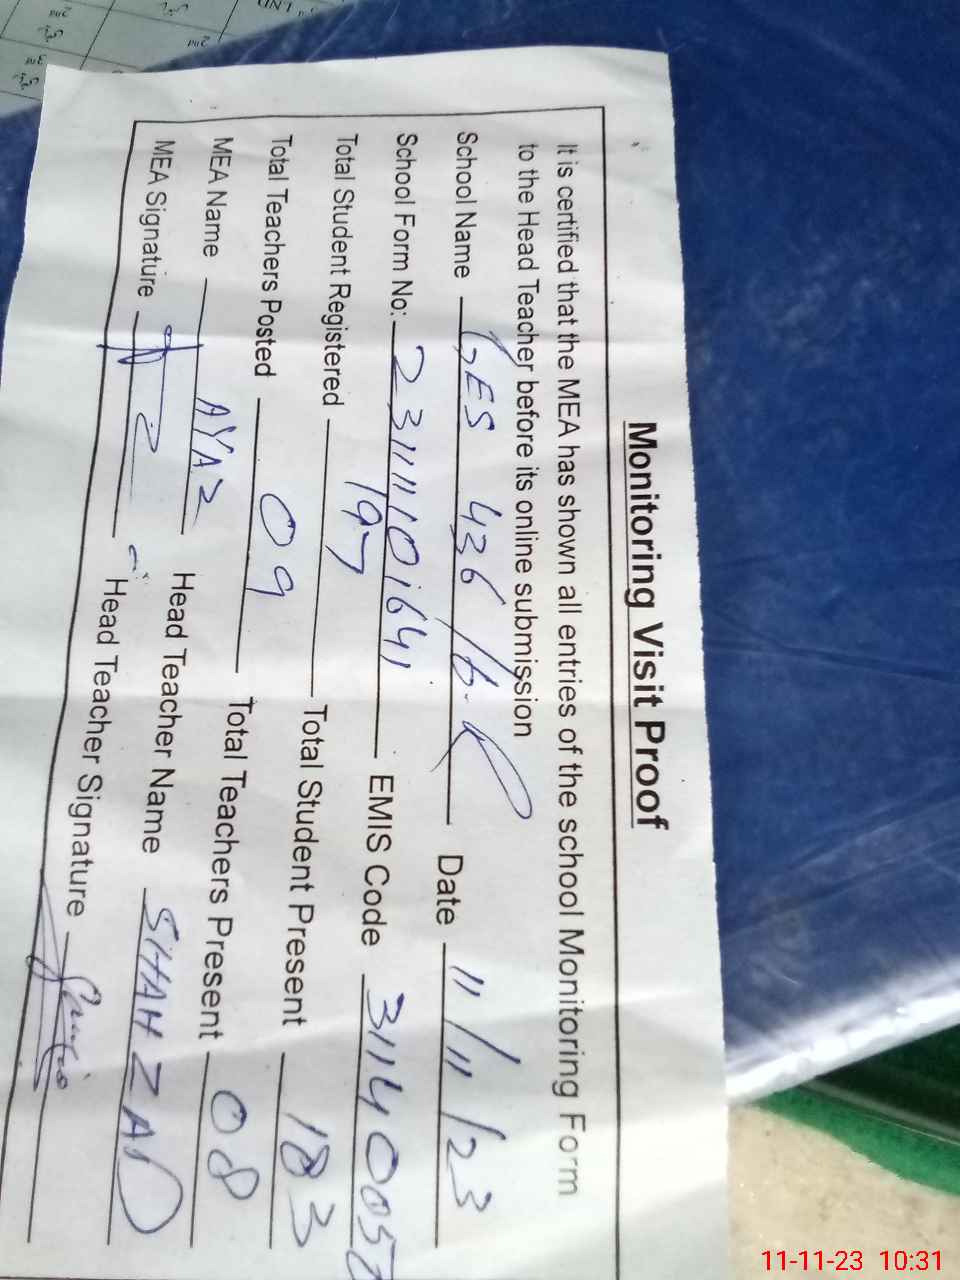 Monitoring Visit Proof
It is certified that the MEA has shown all entries of the school Monitoring Form
to the Head Teacher before its online submission
School Name GES 436/6-R Date 11/11/23
School Form No: 231111101641 EMIS Code
Total Student Registered 197 Total Student Present 183
Total Teachers Posted 09 Total Teachers Present 08
MEA Name AYAZ Head Teacher Name SHAHZAD
MEA Signature Head Teacher Signature
11-11-23 10:31